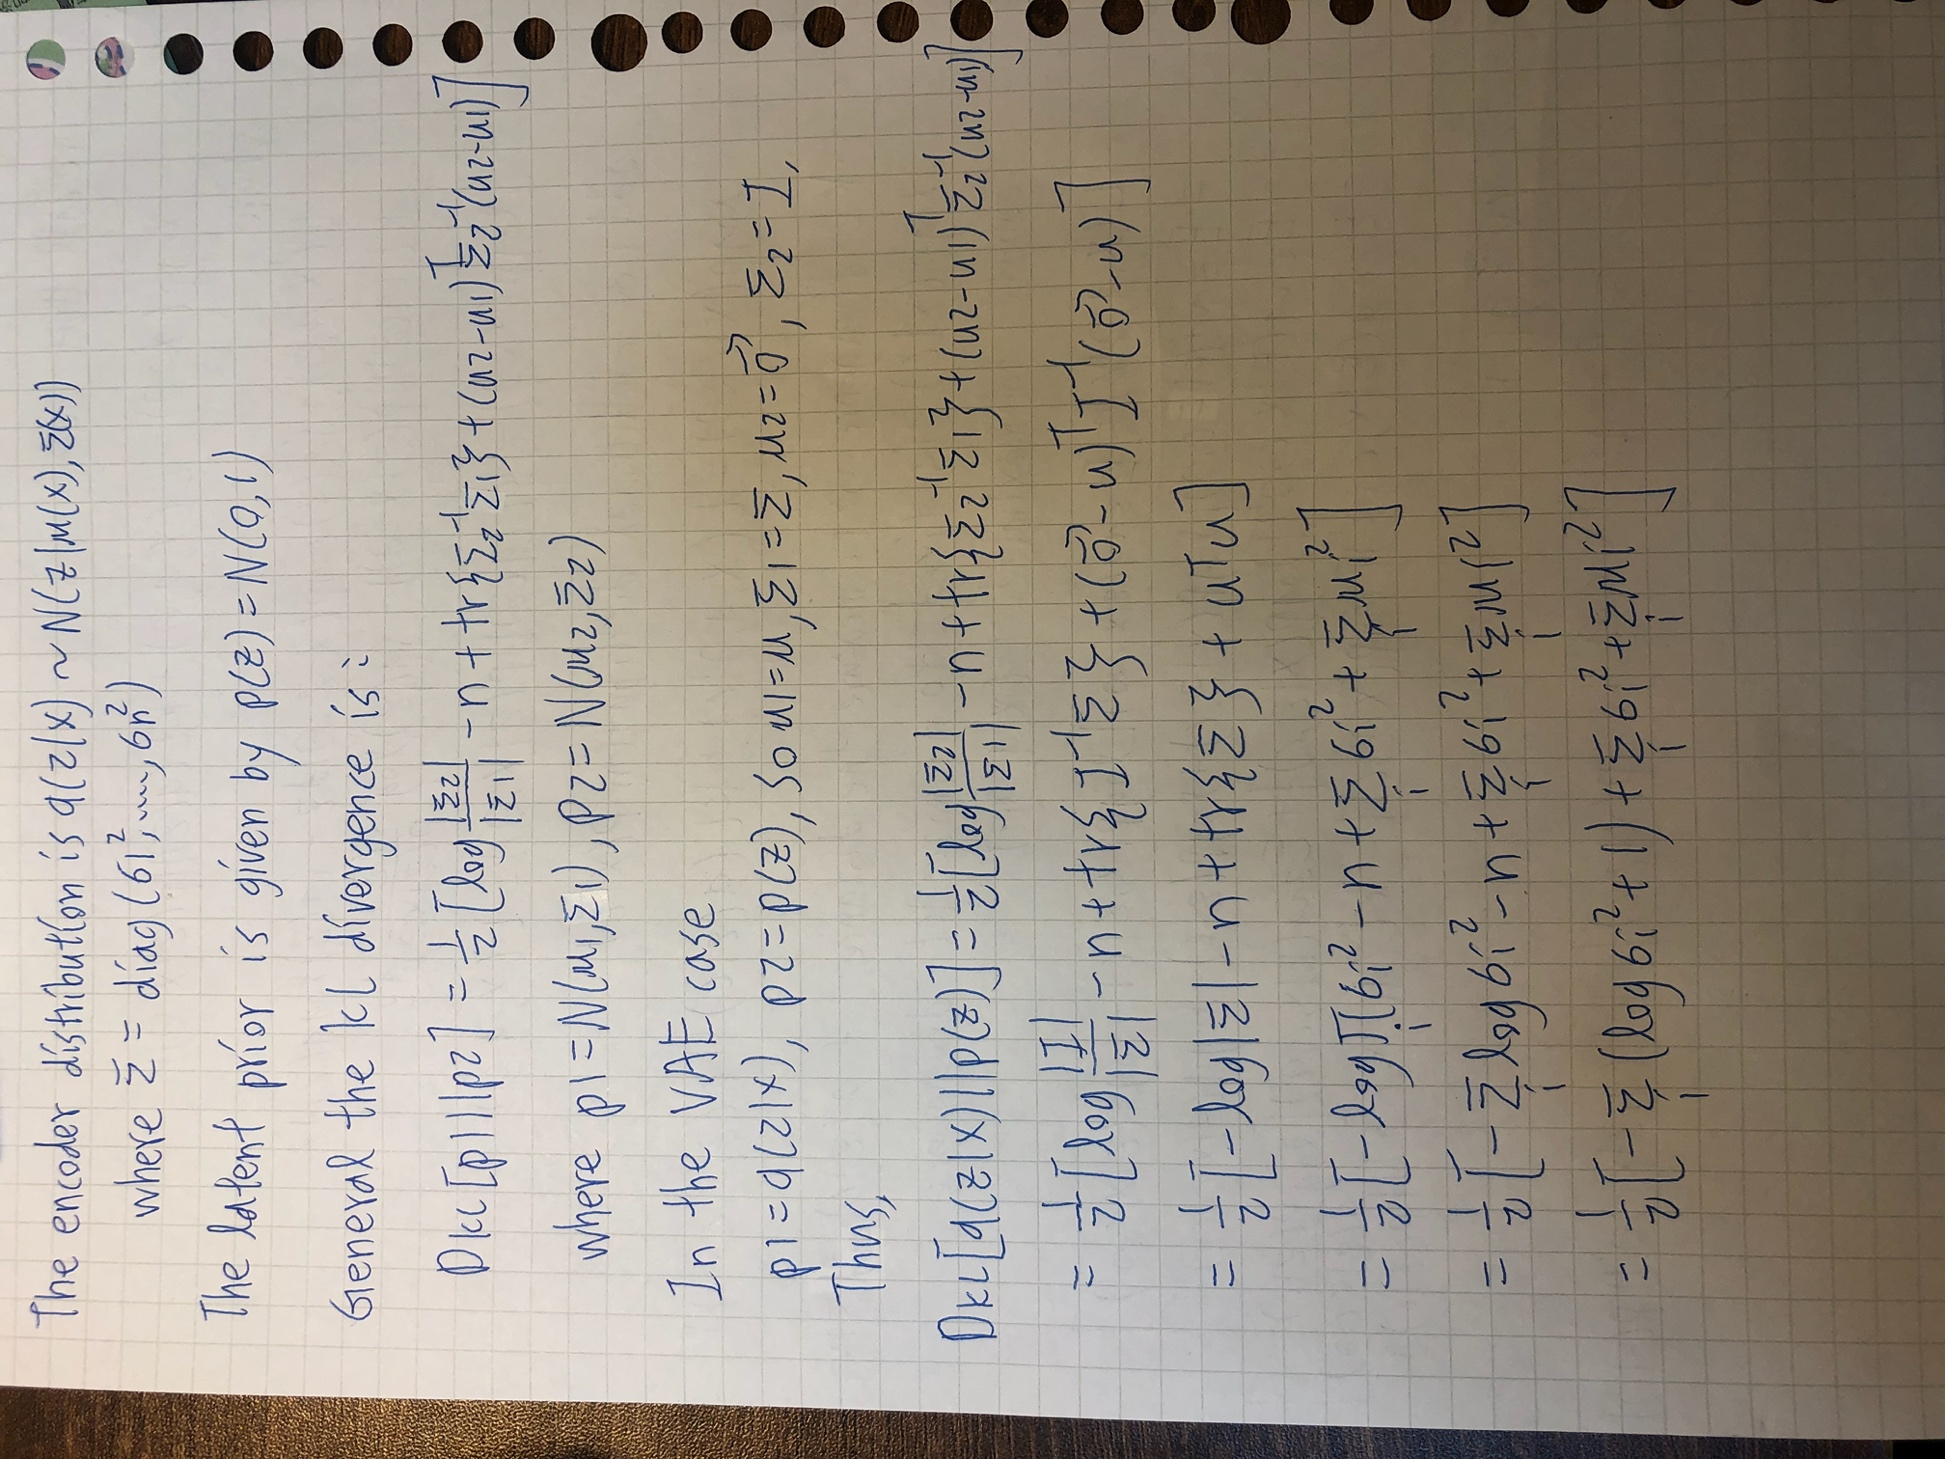 The encoder distribution is q(z|x) ~ N(z|μ(x),Σ(x))
where Σ = diag(σ1²,...,σn²)
The latent prior is given by p(z) = N(0,1)
General the kl divergence is:
DKL[p1||p2] = 1/2 [log |Σ2|/|Σ1| - n + tr{Σ2⁻¹Σ1} + (μ2-μ1)ᵀΣ2⁻¹(μ2-μ1)]
where p1 = N(μ1,Σ1), p2 = N(μ2,Σ2)
In the VAE case
p1 = q(z|x), p2 = p(z), so μ1 = μ, Σ1 = Σ, μ2 = 0⃗, Σ2 = I,
Thus,
DKL[q(z|x)||p(z)] = 1/2 [log |Σ2|/|Σ1| - n + tr{Σ2⁻¹Σ1} + (μ2-μ1)ᵀΣ2⁻¹(μ2-μ1)]
= 1/2 [log |I|/|Σ| - n + tr{I⁻¹Σ} + (0⃗-μ)ᵀI⁻¹(0⃗-μ)]
= 1/2 [-log|Σ| - n + tr{Σ} + μᵀμ]
= 1/2 [-log∏i σi² - n + Σi σi² + Σi μi²]
= 1/2 [-Σi log σi² - n + Σi σi² + Σi μi²]
= 1/2 [-Σi (log σi² + 1) + Σi σi² + Σi μi²]